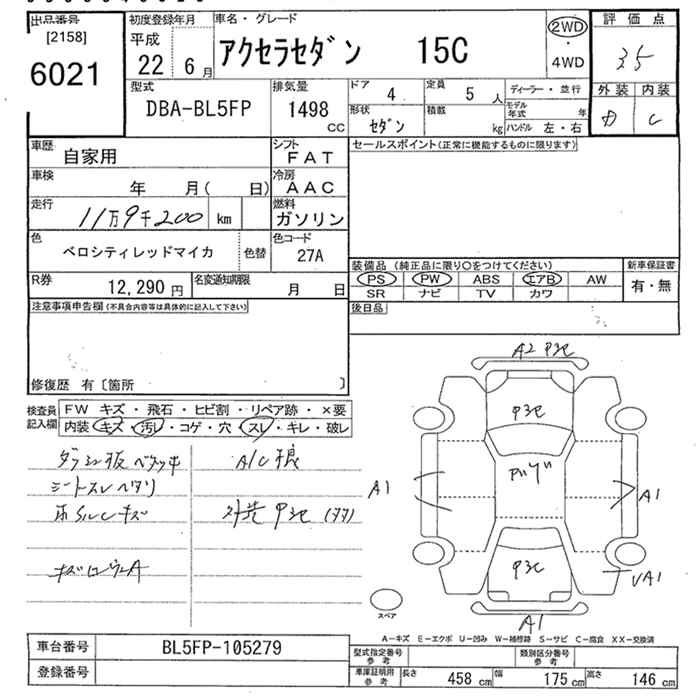 出品番号
[2158]
6021
初度登録年月
平成
22年 6月
車名・グレード
アクセラセダン 15C
2WD
・
4WD
評価点
3.5
外装 内装
D C
型式
DBA-BL5FP
排気量
1498
CC
ドア 4
定員 5 人
ディーラー・並行
形状 セダン
積載 kg
モデル年式 年
ハンドル 左・右
車歴 自家用
シフト FAT
車検 年 月( 日)
冷房 AAC
走行 11万9千200 km
燃料 ガソリン
色 ベロシティレッドマイカ 色替
色コード 27A
R券 12,290円
名変通知期限 月 日
セールスポイント(正常に機能するものに限ります)
装備品 (純正品に限り○をつけてください)
新車保証書
PS PW ABS エアB AW
SR ナビ TV カワ
有・無
後日品
注意事項申告欄(不具合内容等は具体的に記入して下さい)
修復歴 有〔箇所 〕
検査員記入欄
FW キズ・飛石・ヒビ割・リペア跡・×要
内装 キズ・汚レ・コゲ・穴・スレ・キレ・破レ
A/C
キズ
A2
A1
A1
UA1
A1
スペア
A-キズ E-エクボ U-凹み W-補修跡 S-サビ C-腐食 XX-交換済
車台番号 BL5FP-105279
登録番号
型式指定番号 参考
類別区分番号 参考
車庫証明用 参考
長さ 458 cm
幅 175 cm
高さ 146 cm